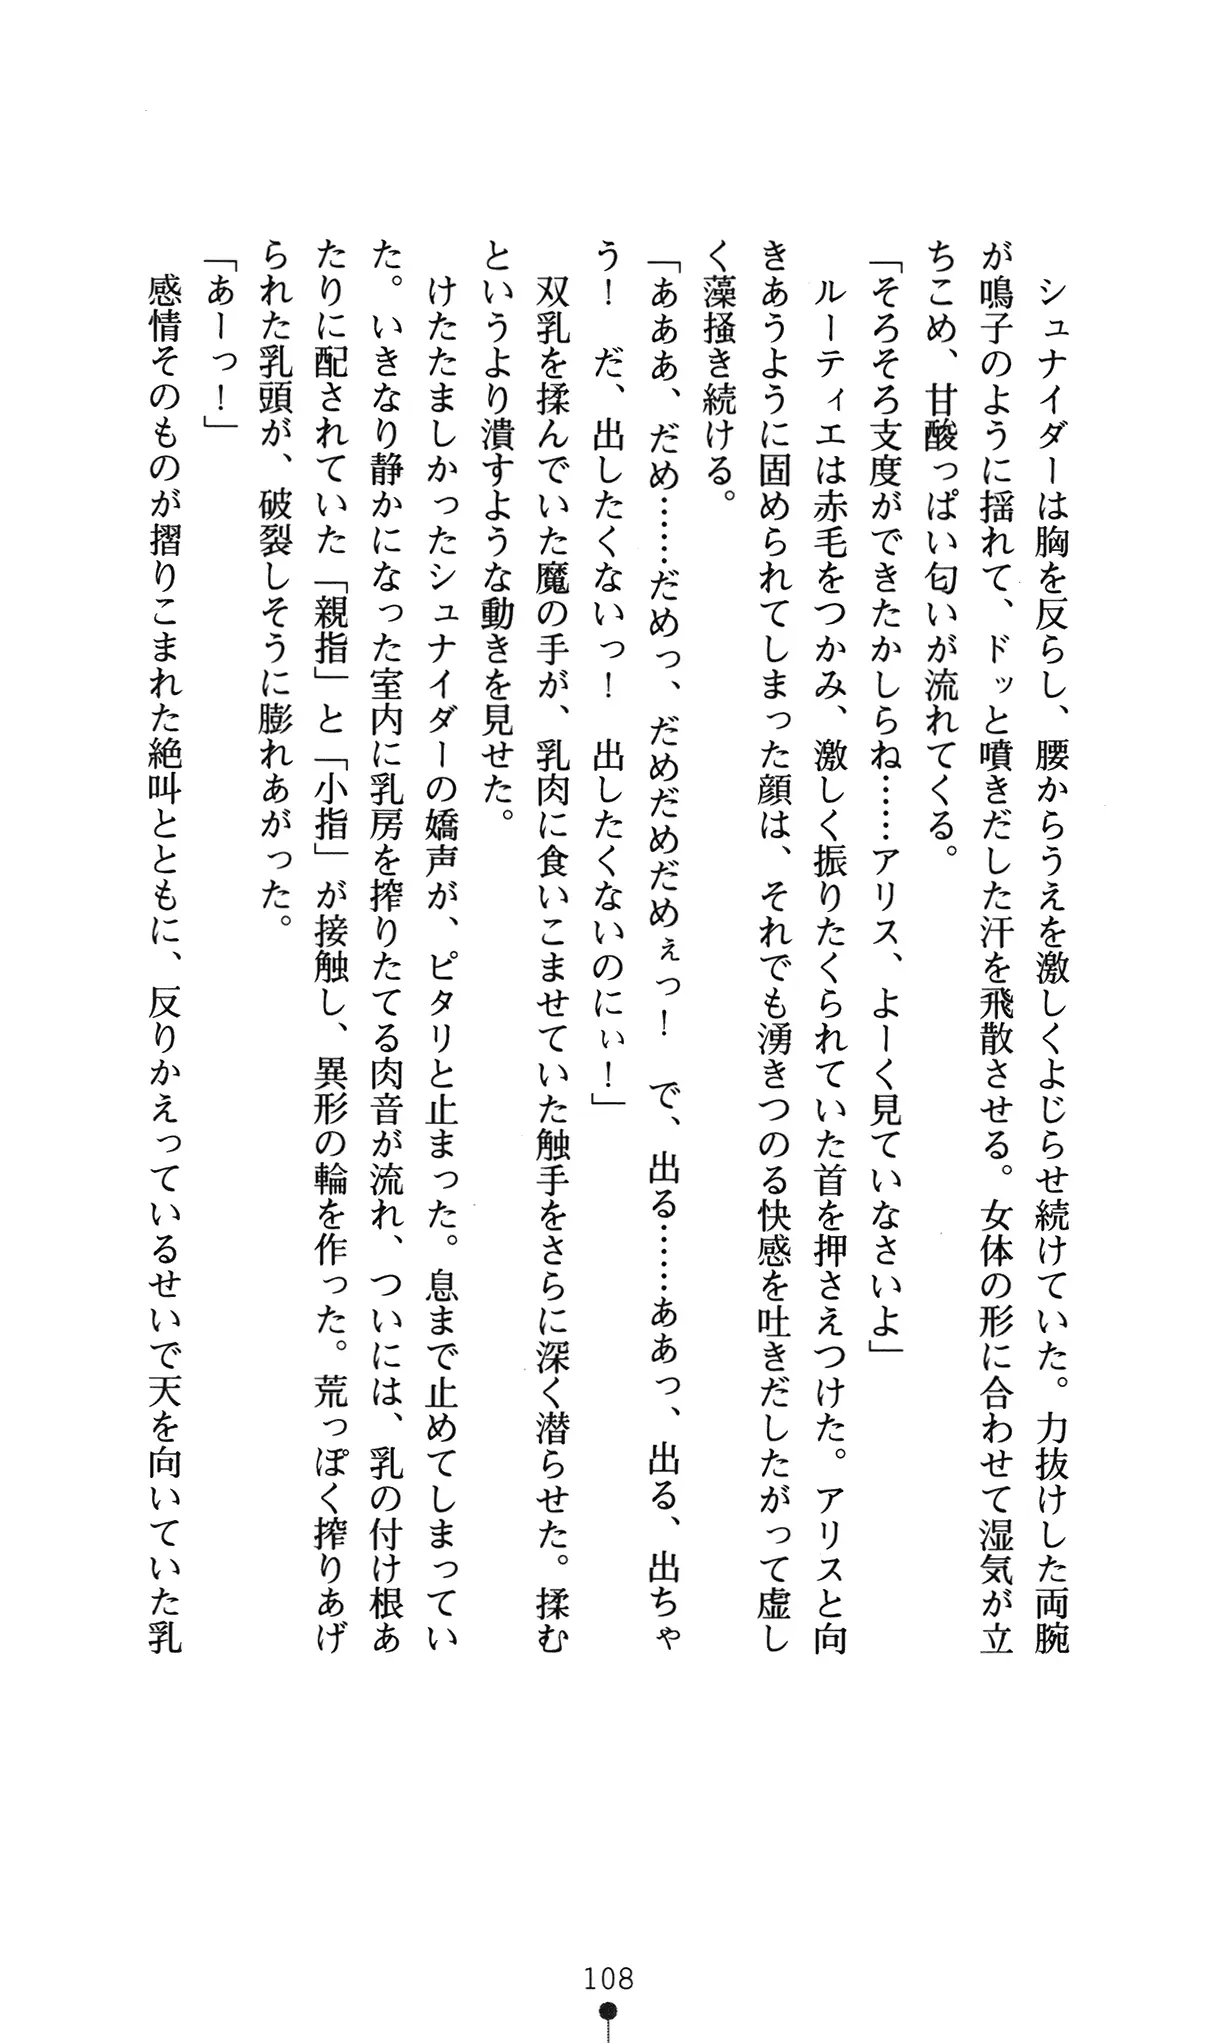 シュナイダーは胸を反らし、腰からうえを激しくよじらせ続けていた。力抜けした両腕
が鳴子のように揺れて、ドッと噴きだした汗を飛散させる。女体の形に合わせて湿気が立
ちこめ、甘酸っぱい匂いが流れてくる。
「そろそろ支度ができたかしらね……アリス、よーく見ていなさいよ」
ルーティエは赤毛をつかみ、激しく振りたくられていた首を押さえつけた。アリスと向
きあうように固められてしまった顔は、それでも湧きつのる快感を吐きだしたがって虚し
く藻掻き続ける。
「あああ、だめ……だめっ、だめだめだめぇっ！　で、出る……ああっ、出る、出ちゃ
う！　だ、出したくないっ！　出したくないのにぃ！」
双乳を揉んでいた魔の手が、乳肉に食いこませていた触手をさらに深く潜らせた。揉む
というより潰すような動きを見せた。
けたたましかったシュナイダーの嬌声が、ピタリと止まった。息まで止めてしまってい
た。いきなり静かになった室内に乳房を搾りたてる肉音が流れ、ついには、乳の付け根あ
たりに配されていた「親指」と「小指」が接触し、異形の輪を作った。荒っぽく搾りあげ
られた乳頭が、破裂しそうに膨れあがった。
「あーっ！」
感情そのものが摺りこまれた絶叫とともに、反りかえっているせいで天を向いていた乳
108